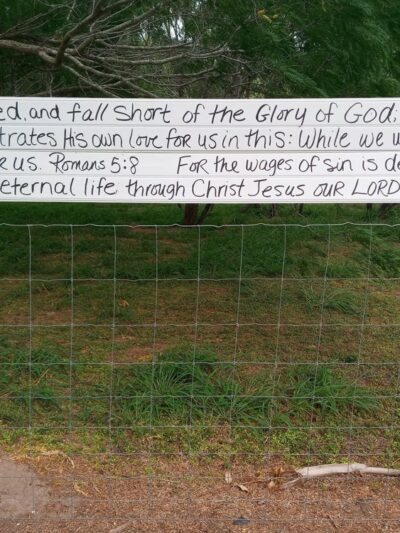 ed, and fall short of the Glory of God;
trates His own love for us in this: While we w
r us. Romans 5:8 For the wages of sin is de
eternal life through Christ Jesus our LORD